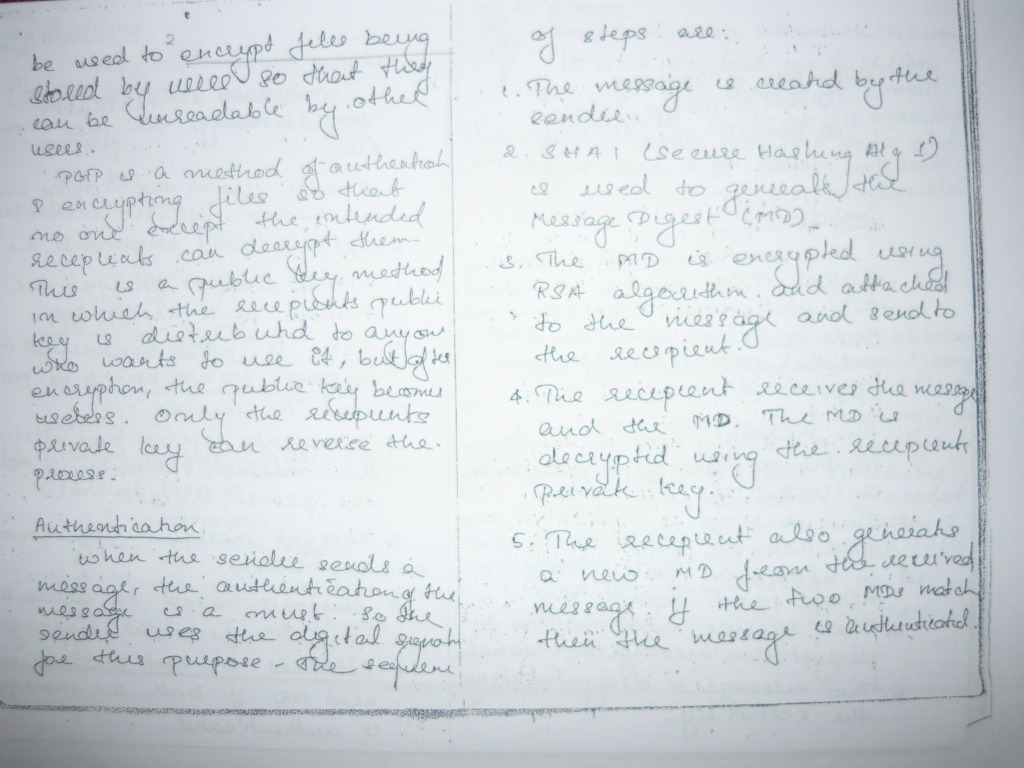 be used to encrypt files being
stored by users so that they
can be unreadable by other
users.
PGP is a method of authentication
& encrypting files so that
no one except the intended
recepients can decrypt them
This is a public key method
in which the recepients public
key is distributed to anyone
who wants to use it, but after
encryption, the public key becomes
useless. Only the recepients
private key can reverse the
process.
Authentication
When the sender sends a
message, the authentication of the
message is a must. so the
sender uses the digital signature
for this purpose - The sequence
of steps are:
1. The message is created by the
sender.
2. SHA1 (Secure Hashing Alg 1)
is used to generate the
Message Digest (MD)
3. The MD is encrypted using
RSA algorithm and attached
to the message and send to
the recepient.
4. The recepient receives the message
and the MD. The MD is
decrypted using the recepients
private key.
5. The recepient also generates
a new MD from the received
message if the two MDs match
then the message is authenticated.